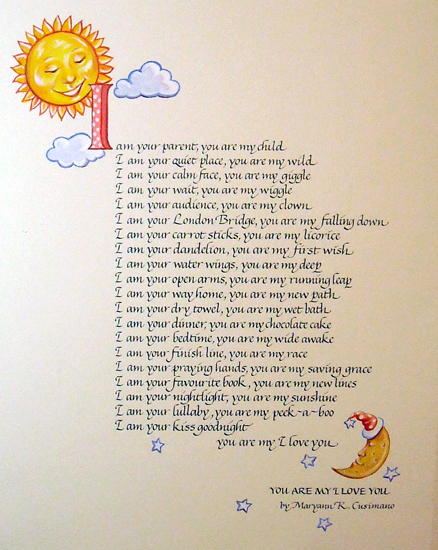 I am your parent, you are my child
I am your quiet place, you are my wild
I am your calm face, you are my giggle
I am your wait, you are my wiggle
I am your audience, you are my clown
I am your London Bridge, you are my falling down
I am your carrot sticks, you are my licorice
I am your dandelion, you are my first wish
I am your water wings, you are my deep
I am your open arms, you are my running leap
I am your way home, you are my new path
I am your dry towel, you are my wet bath
I am your dinner, you are my chocolate cake
I am your bedtime, you are my wide awake
I am your finish line, you are my race
I am your praying hands, you are my saving grace
I am your favourite book, you are my new lines
I am your nightlight, you are my sunshine
I am your lullaby, you are my peek~a~boo
I am your kiss goodnight
you are my I love you
YOU ARE MY I LOVE YOU
by Maryann K. Cusimano